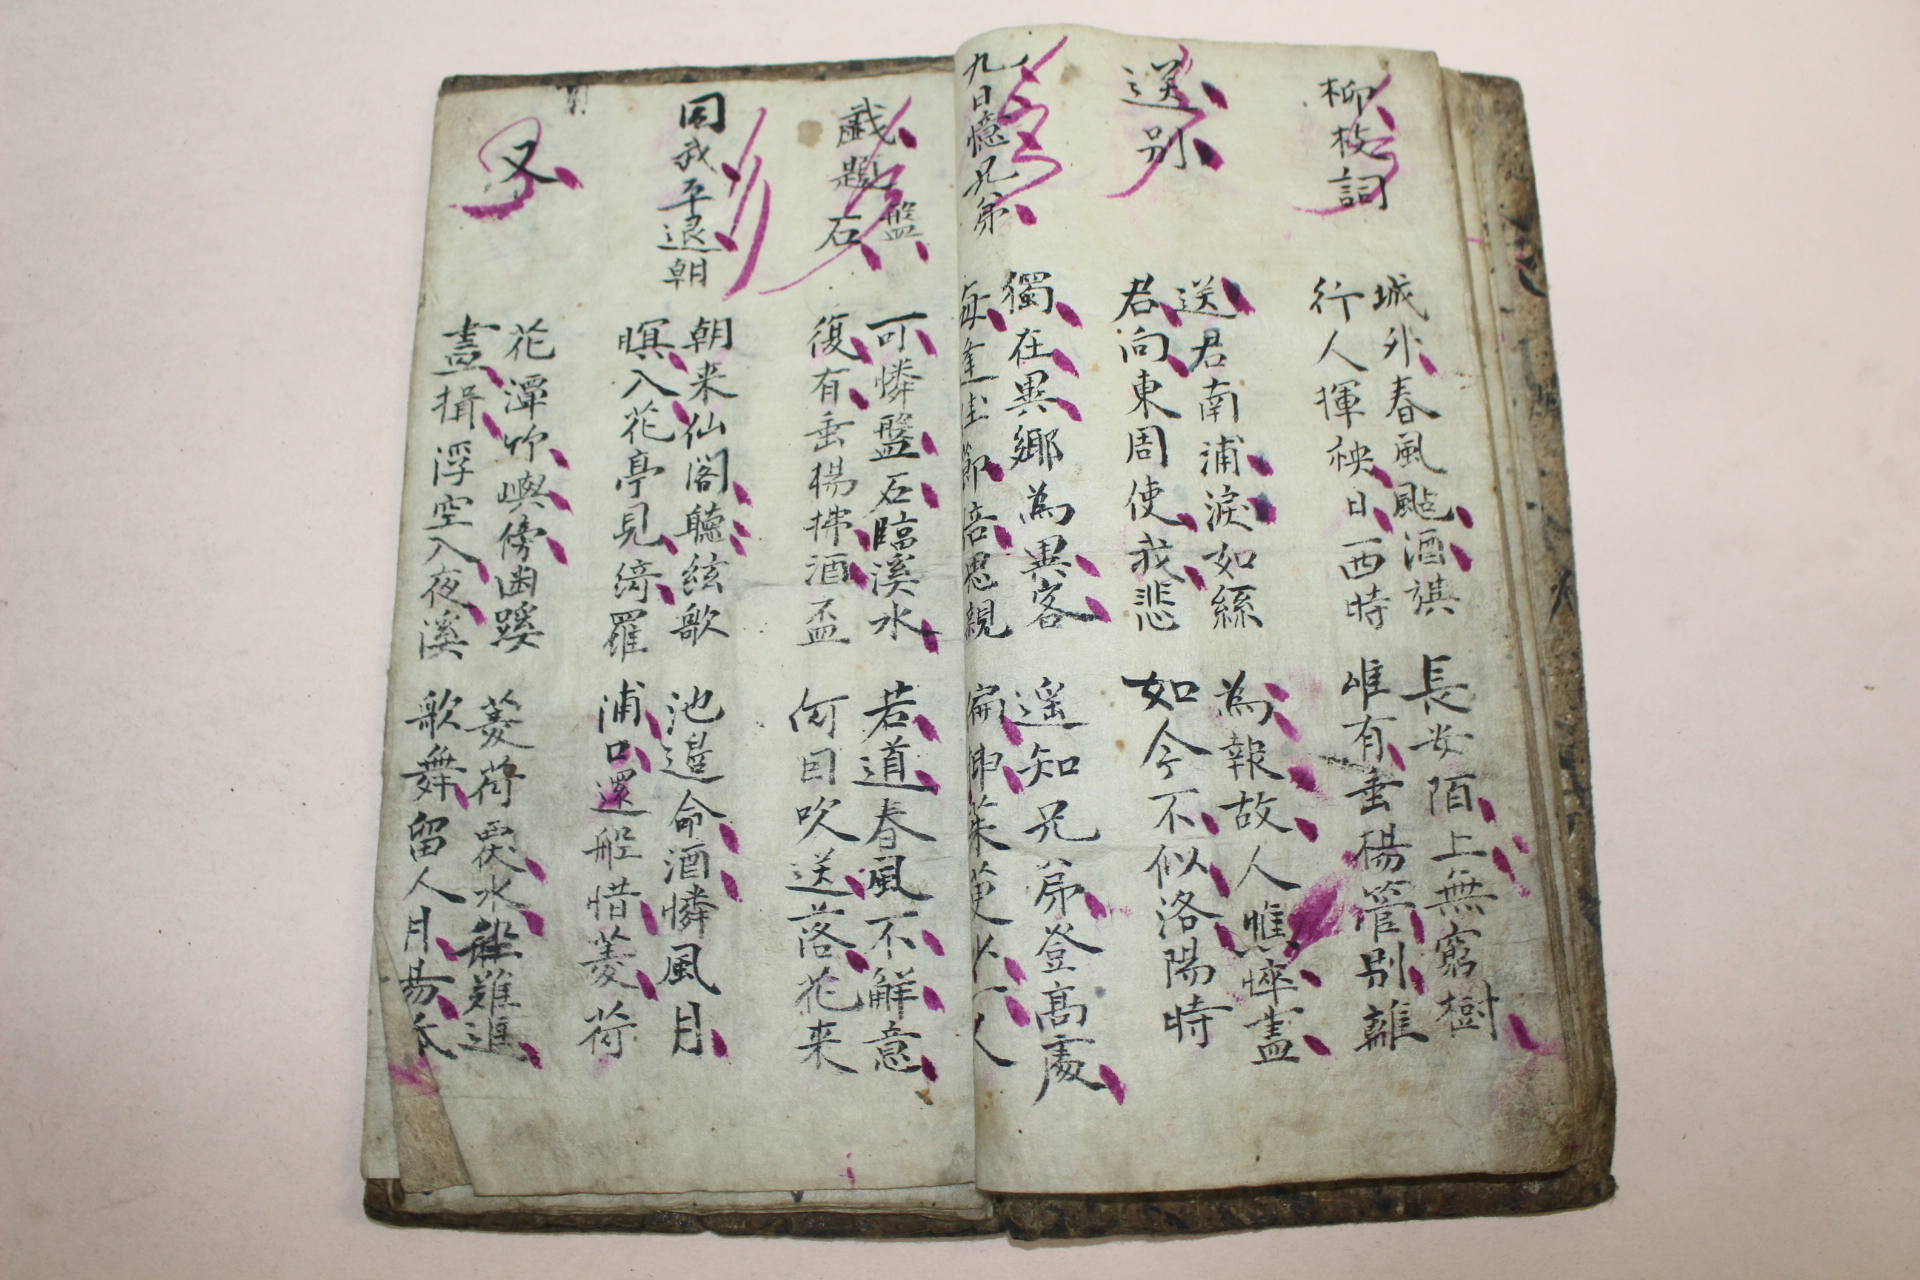 柳枝詞
城外春風颭酒旗
行人揮袂日西時
長安陌上無窮樹
唯有垂楊管別離
送別
送君南浦淚如絲
君向東周使我悲
為報故人憔悴盡
如今不似洛陽時
九日憶兄弟
獨在異鄉為異客
每逢佳節倍思親
遥知兄弟登高處
戱題盤石
可憐盤石臨溪水
復有垂楊拂酒盃
若道春風不解意
何因吹送落花来
同 平退朝
朝来仙阁聽絃歌
暝入花亭見綺羅
池邉命酒憐風月
浦口還船惜菱荷
又
花潭竹嶼傍幽蹊
畫揖浮空入夜溪
菱荷覆水船難進
歌舞留人月易